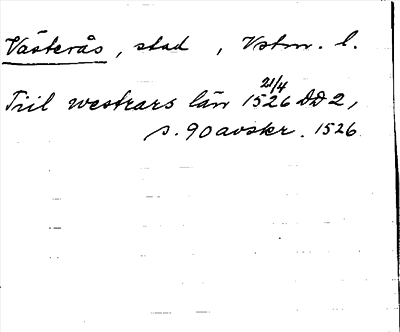 Västerås, stad, Vstm. l.
Tiil westrars län 1526 21/4 DD 2,
s. 90 avskr. 1526